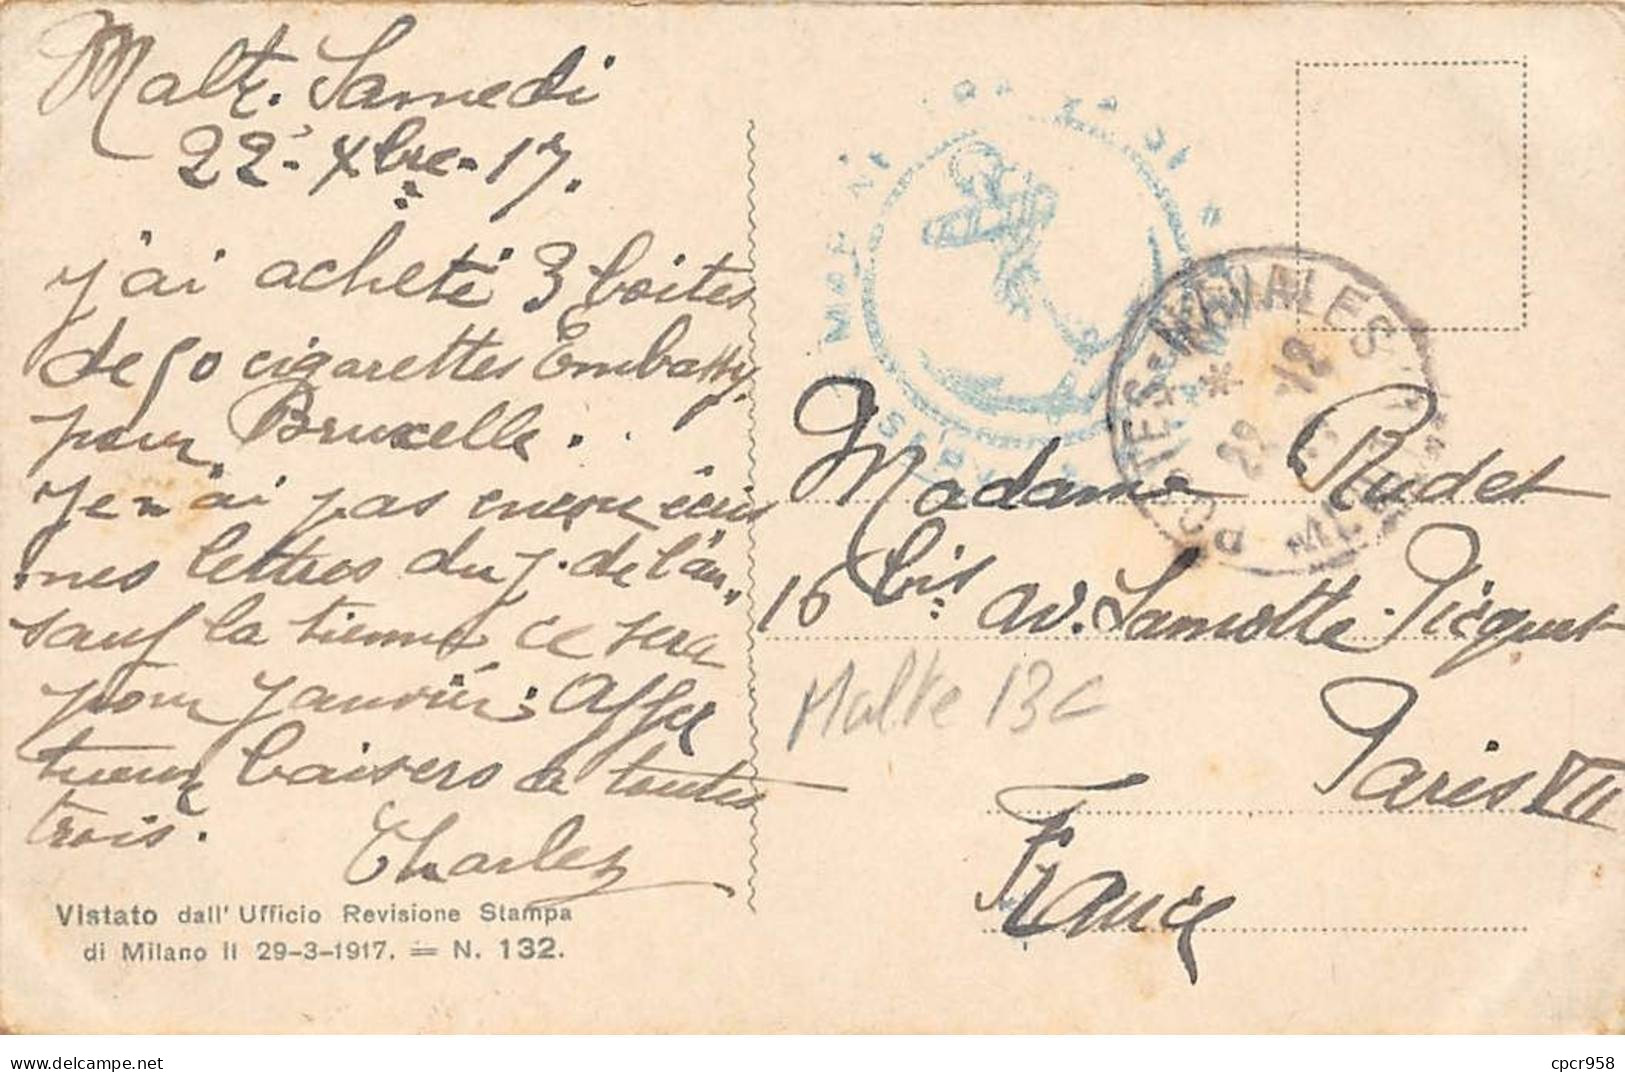 Malte. Samedi
22-Xbre-17.
j'ai acheté 3 boites
de 50 cigarettes Embassy
pour Bruxelle.
Je n'ai pas encore écris
mes lettres du j. de l'an,
sauf la tienne ce sera
pour Janvier. Affec
tueux baisers a toutes
trois.
Charles
Vistato dall' Ufficio Revisione Stampa
di Milano il 29-3-1917. = N. 132.
MARINE FRANÇAISE
SERVICE
POSTES NAVALES
22 -12
Madame Rudet
16 bis av. Lamotte-Picquet
Malte 13C
Paris VII
France
cpcr958